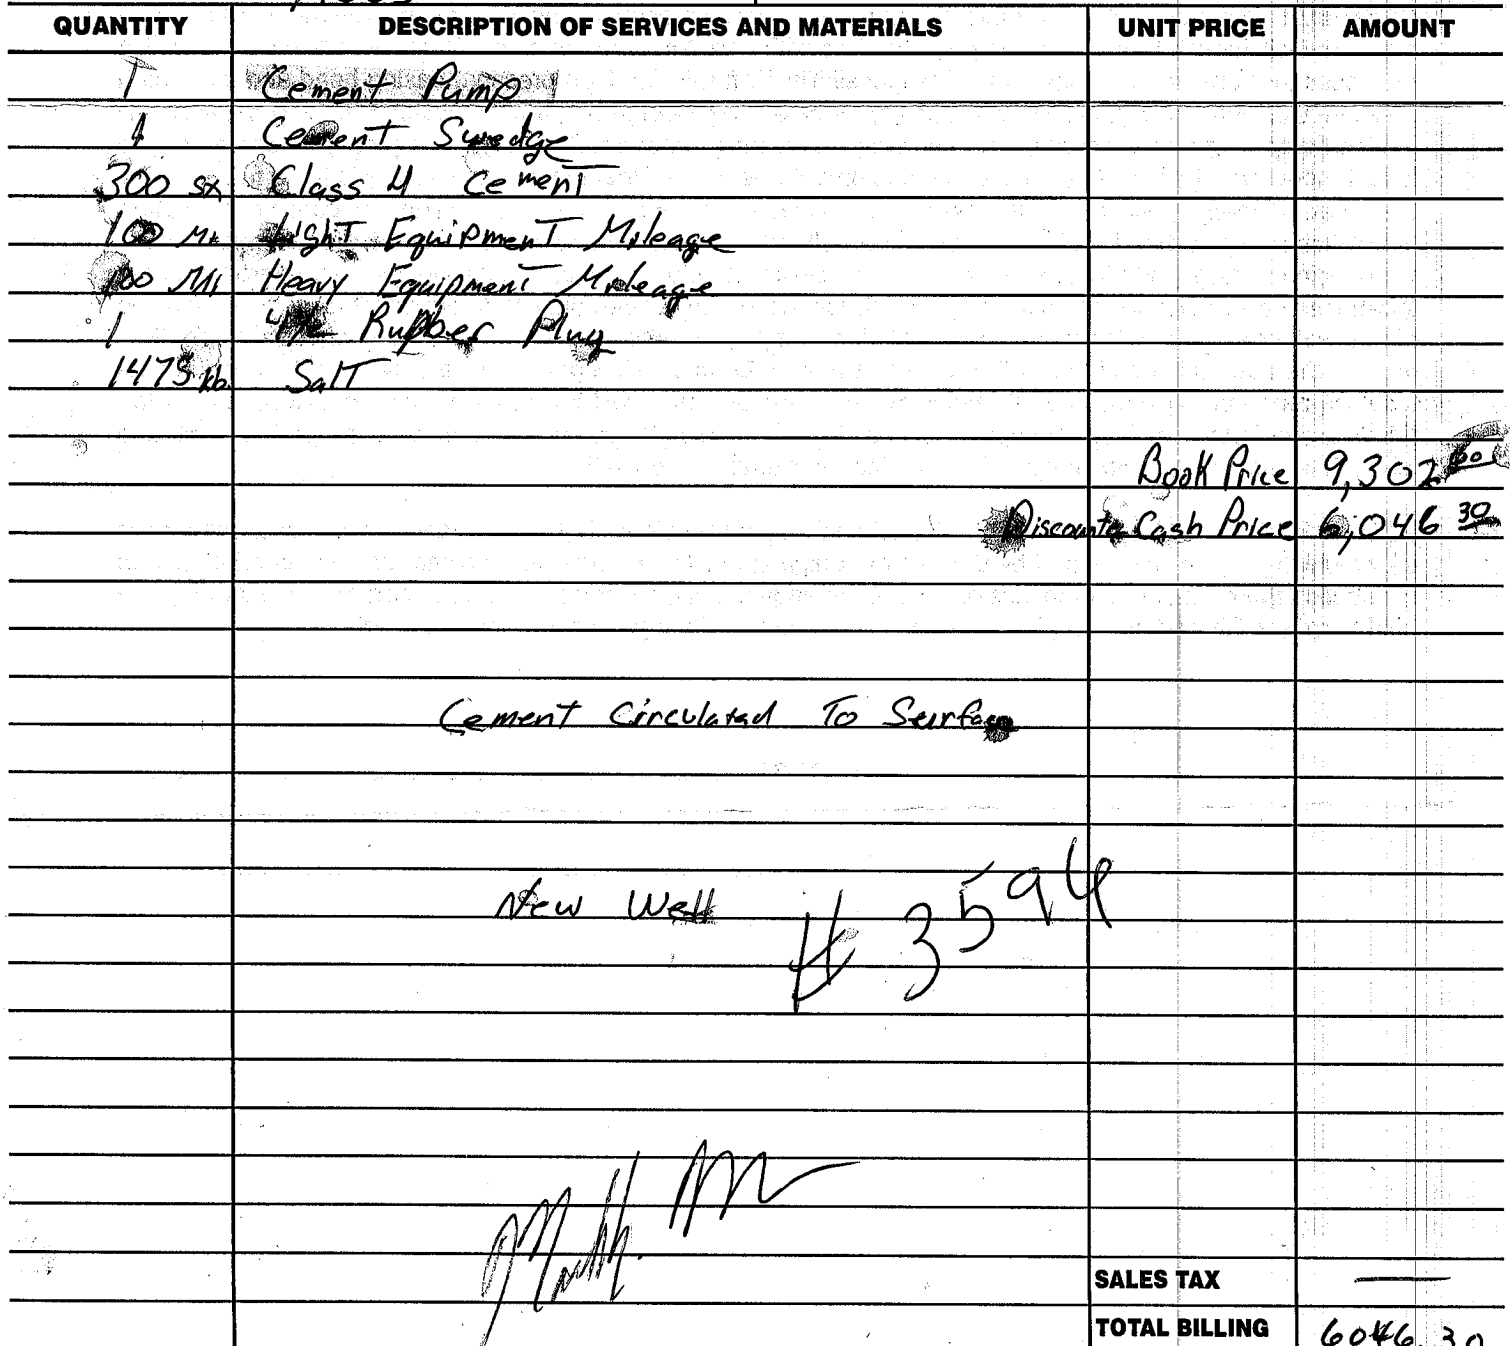 QUANTITY DESCRIPTION OF SERVICES AND MATERIALS UNIT PRICE AMOUNT
1 Cement Pump
1 Cement Swedge
300 sx Class H Cement
100 Mi Light Equipment Mileage
100 Mi Heavy Equipment Mileage
1 4 1/2 Rubber Plug
1475 lb. Salt
Book Price 9,302 00
Discounte Cash Price 6,046 30
Cement Circulated To Surface
New Well # 3594
SALES TAX —
TOTAL BILLING 6046.30